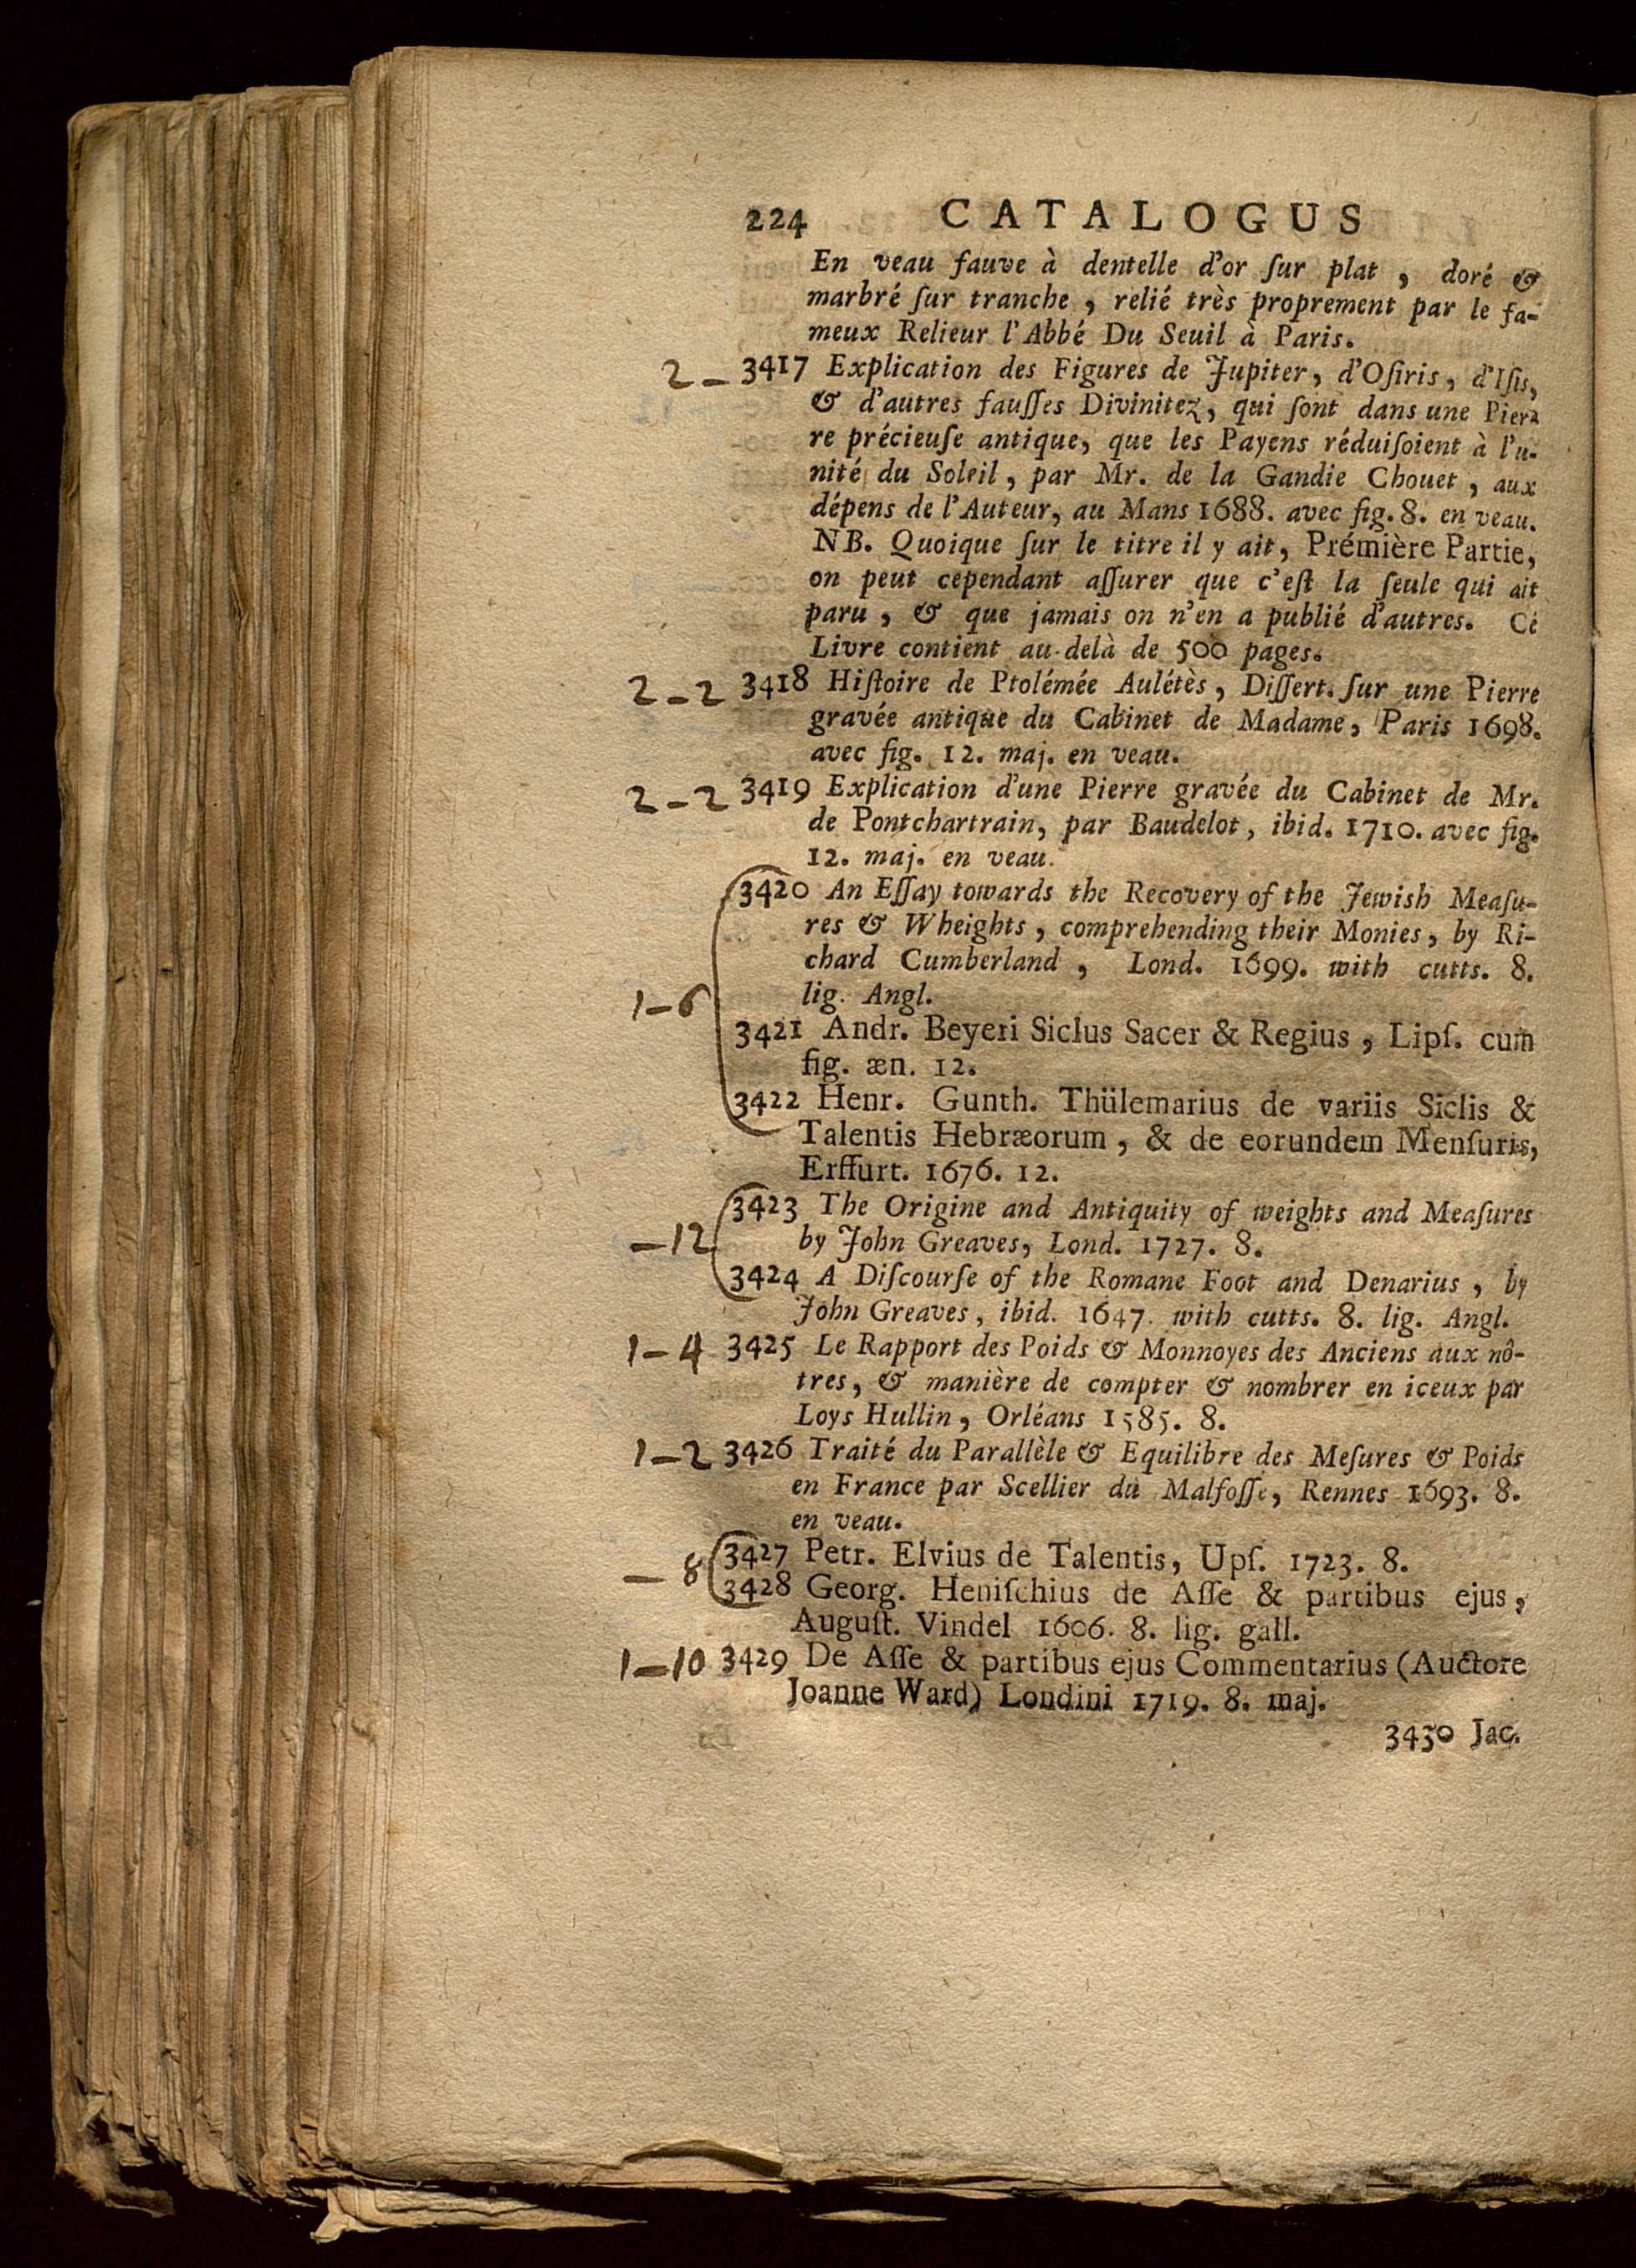 224 CATALOGUS
En veau fauve à dentelle d'or ſur plat , doré &
marbré ſur tranche , relié très proprement par le fa-
meux Relieur l'Abbé Du Seuil à Paris.
2 — 3417 Explication des Figures de Jupiter, d'Oſiris, d'Iſis,
& d'autres fauſſes Divinitez, qui ſont dans une Pier-
re précieuſe antique, que les Payens réduiſoient à l'u-
nité du Soleil, par Mr. de la Gandie Chouet , aux
dépens de l'Auteur, au Mans 1688. avec fig. 8. en veau.
NB. Quoique ſur le titre il y ait, Prémière Partie,
on peut cependant aſſurer que c'eſt la ſeule qui ait
paru , & que jamais on n'en a publié d'autres. Ce
Livre contient au-delà de 500 pages.
2 – 2 3418 Hiſtoire de Ptolémée Aulétès, Diſſert. ſur une Pierre
gravée antique du Cabinet de Madame, Paris 1698.
avec fig. 12. maj. en veau.
2 – 2 3419 Explication d'une Pierre gravée du Cabinet de Mr.
de Pontchartrain, par Baudelot, ibid. 1710. avec fig.
12. maj. en veau.
3420 An Eſſay towards the Recovery of the Jewish Meaſu-
res & Wheights , comprehending their Monies, by Ri-
chard Cumberland , Lond. 1699. with cutts. 8.
1 – 6 lig. Angl.
3421 Andr. Beyeri Siclus Sacer & Regius , Lipſ. cum
fig. æn. 12.
3422 Henr. Gunth. Thülemarius de variis Siclis &
Talentis Hebræorum , & de eorundem Menſuris,
Erffurt. 1676. 12.
3423 The Origine and Antiquity of weights and Meaſures
— 12 by John Greaves, Lond. 1727. 8.
3424 A Diſcourſe of the Romane Foot and Denarius , by
John Greaves, ibid. 1647. with cutts. 8. lig. Angl.
1 – 4 3425 Le Rapport des Poids & Monnoyes des Anciens aux nô-
tres, & manière de compter & nombrer en iceux par
Loys Hullin, Orléans 1585. 8.
1 – 2 3426 Traité du Parallèle & Equilibre des Meſures & Poids
en France par Scellier du Malfoſſe, Rennes 1693. 8.
en veau.
3427 Petr. Elvius de Talentis, Upſ. 1723. 8.
— 8 3428 Georg. Heniſchius de Aſſe & partibus ejus,
Auguſt. Vindel 1606. 8. lig. gall.
1 – 10 3429 De Aſſe & partibus ejus Commentarius (Auctore
Joanne Ward) Londini 1719. 8. maj.
3430 Jac.